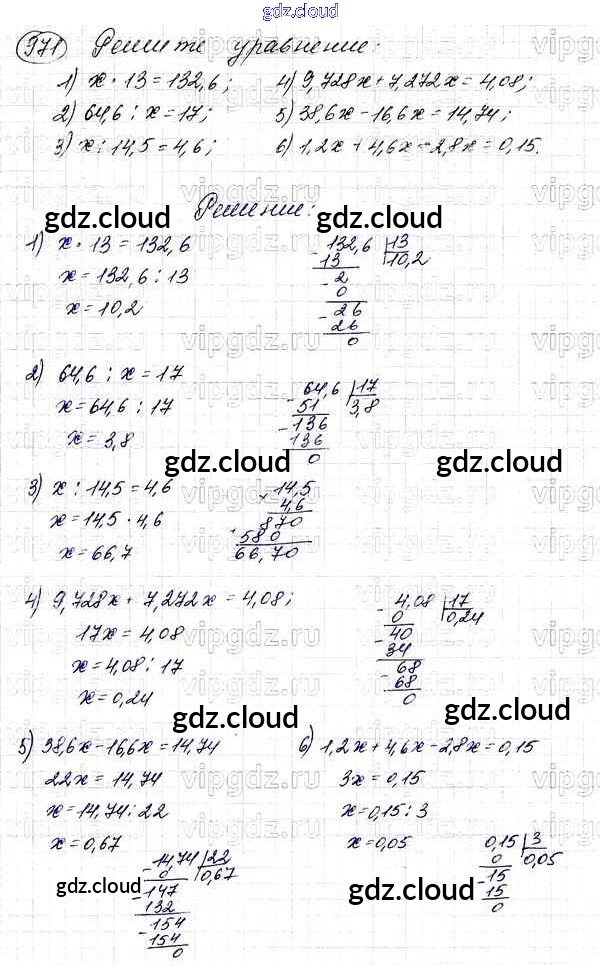 gdz.cloud
971 Решите уравнение:
1) x · 13 = 132,6; 4) 9,728x + 7,272x = 4,08;
2) 64,6 : x = 17; 5) 38,6x - 16,6x = 14,74;
3) x : 14,5 = 4,6; 6) 1,2x + 4,6x - 2,8x = 0,15.
Решение:
gdz.cloud gdz.cloud
1) x · 13 = 132,6
x = 132,6 : 13
x = 10,2
- 132,6 | 13
13 10,2
- 2
0
- 26
26
0
vipgdz.ru vipgdz.ru vipgdz.ru
2) 64,6 : x = 17
x = 64,6 : 17
x = 3,8
- 64,6 | 17
51 3,8
- 136
136
0
gdz.cloud gdz.cloud
3) x : 14,5 = 4,6
x = 14,5 · 4,6
x = 66,7
× 14,5
4,6
870
+ 580
66,70
4) 9,728x + 7,272x = 4,08;
17x = 4,08
x = 4,08 : 17
x = 0,24
- 4,08 | 17
0 0,24
- 40
34
- 68
68
0
gdz.cloud gdz.cloud
5) 38,6x - 16,6x = 14,74
22x = 14,74
x = 14,74 : 22
x = 0,67
- 14,74 | 22
0 0,67
- 147
132
- 154
154
0
6) 1,2x + 4,6x - 2,8x = 0,15
3x = 0,15
x = 0,15 : 3
x = 0,05
0,15 | 3
0 0,05
- 15
15
0
gdz.cloud gdz.cloud